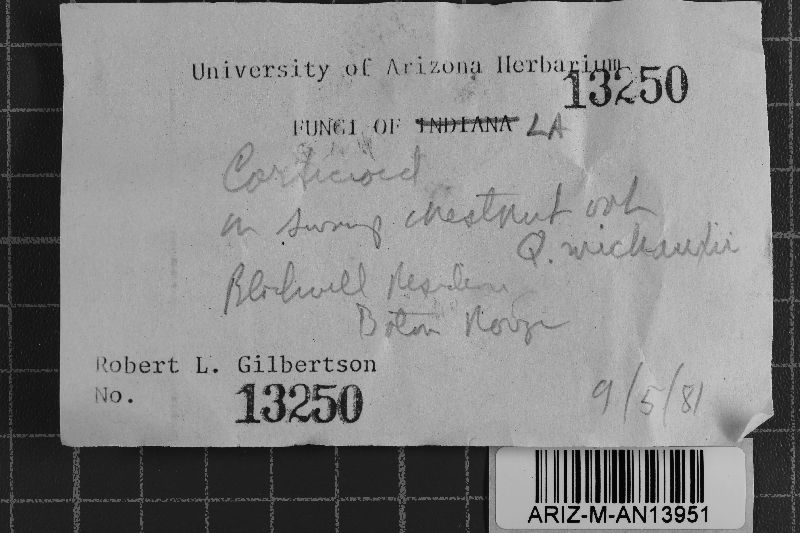 University of Arizona Herbarium
13250
FUNGI OF INDIANA LA
Corticioid
on swamp chestnut oak
Q. michauxii
Blackwell Residence
Baton Rouge
Robert L. Gilbertson
No. 13250
9/5/81
ARIZ-M-AN13951